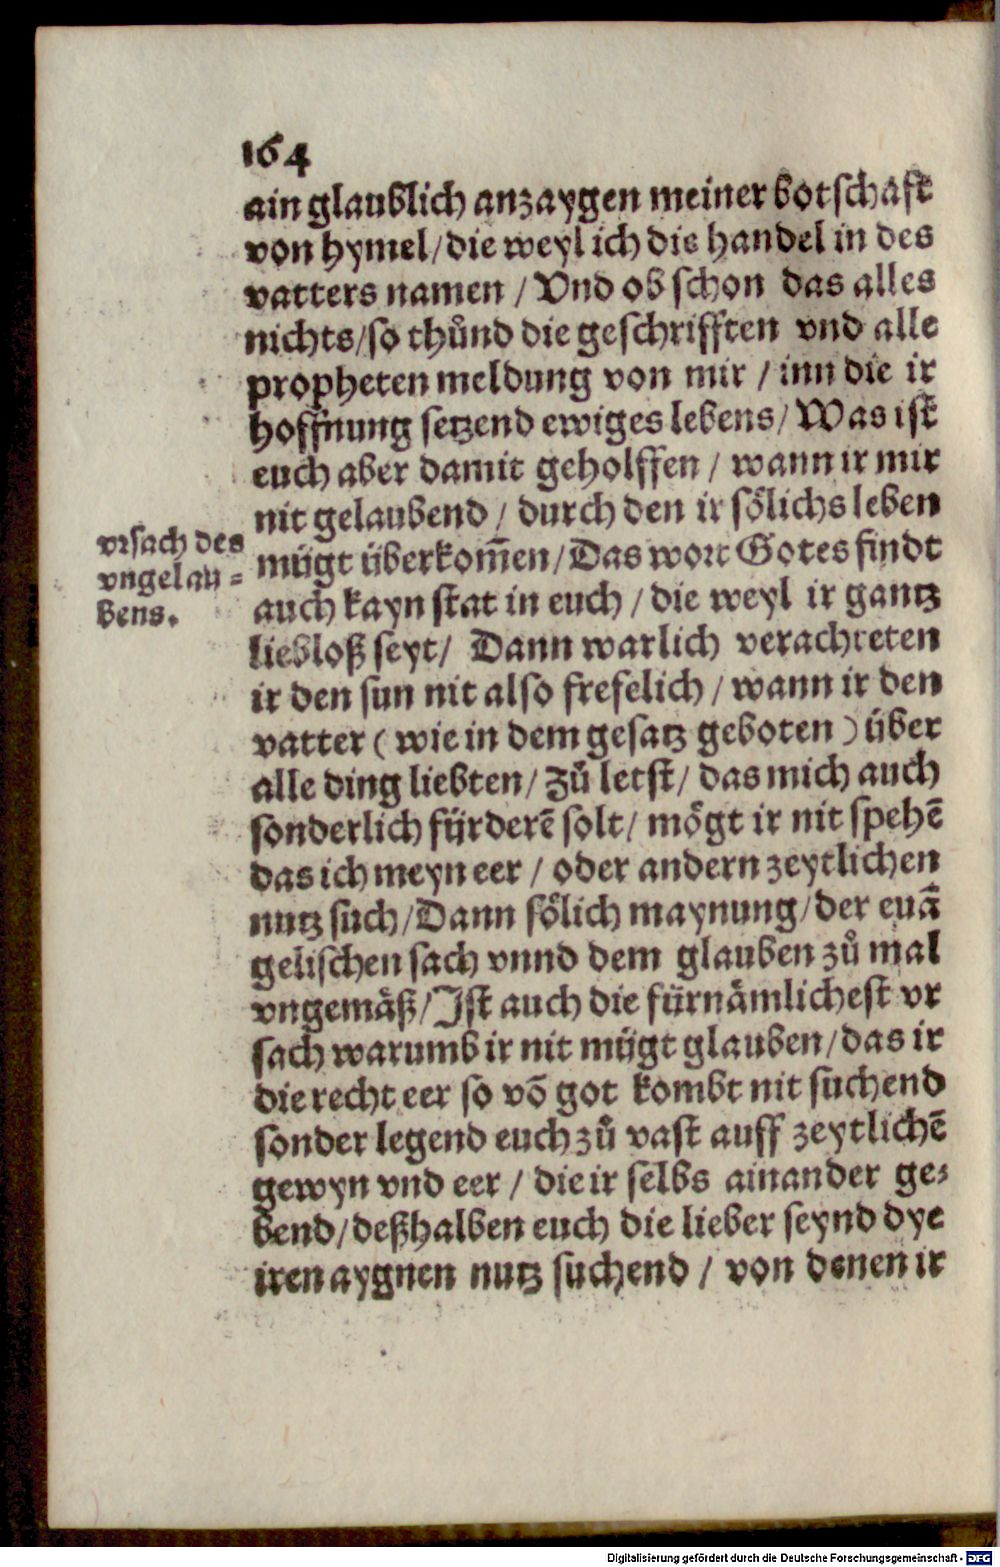 164
ain glaublich anzaygen meiner botschafft
von hymel/die weyl ich die handel in des
vatters namen / Vnd ob schon das alles
nichts/so thůnd die geschrifften vnd alle
propheten meldung von mir / inn die ir
hoffnung setzend ewiges lebens/ Was ist
euch aber damit geholffen / wann ir mir
nit gelaubend / durch den ir sölichs leben
vrsach des
vngelau=
bens.
mügt überkom̃en/Das wort Gotes findt
auch kayn stat in euch / die weyl ir gantz
liebloß seyt/ Dann warlich verachteten
ir den sun nit also frefelich / wann ir den
vatter ( wie in dem gesatz geboten ) über
alle ding liebten/ Zů letst/ das mich auch
sonderlich fürderẽ solt/ mögt ir nit spehẽ
das ich meyn eer / oder andern zeytlichen
nutz such/Dann sölich maynung/der euã
gelischen sach vnnd dem glauben zů mal
vngemäß/Ist auch die fürnämlichest vr
sach warumb ir nit mügt glauben/das ir
die recht eer so võ got kombt nit suchend
sonder legend euch zů vast auff zeytlichẽ
gewyn vnd eer / die ir selbs ainander ge=
bend/deßhalben euch die lieber seynd dye
iren aygnen nutz suchend / von denen ir
Digitalisierung gefördert durch die Deutsche Forschungsgemeinschaft - DFG